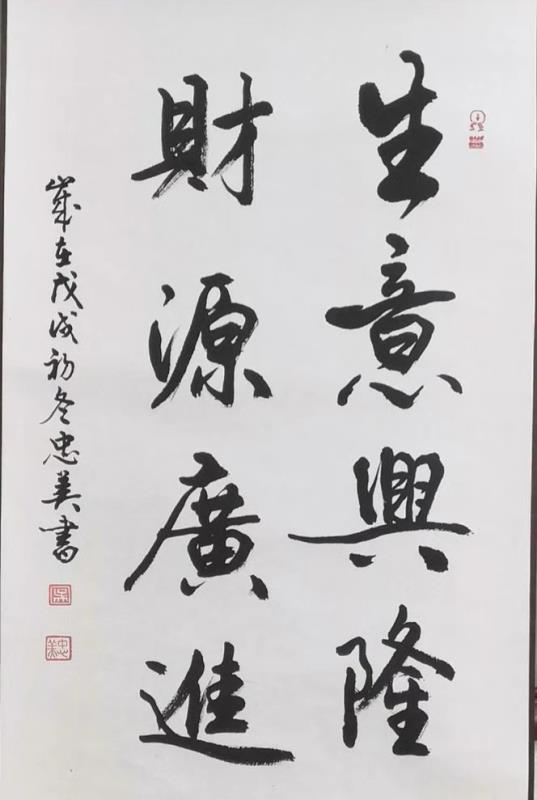 生意興隆
財源廣進
歲在戊戌初冬忠美書